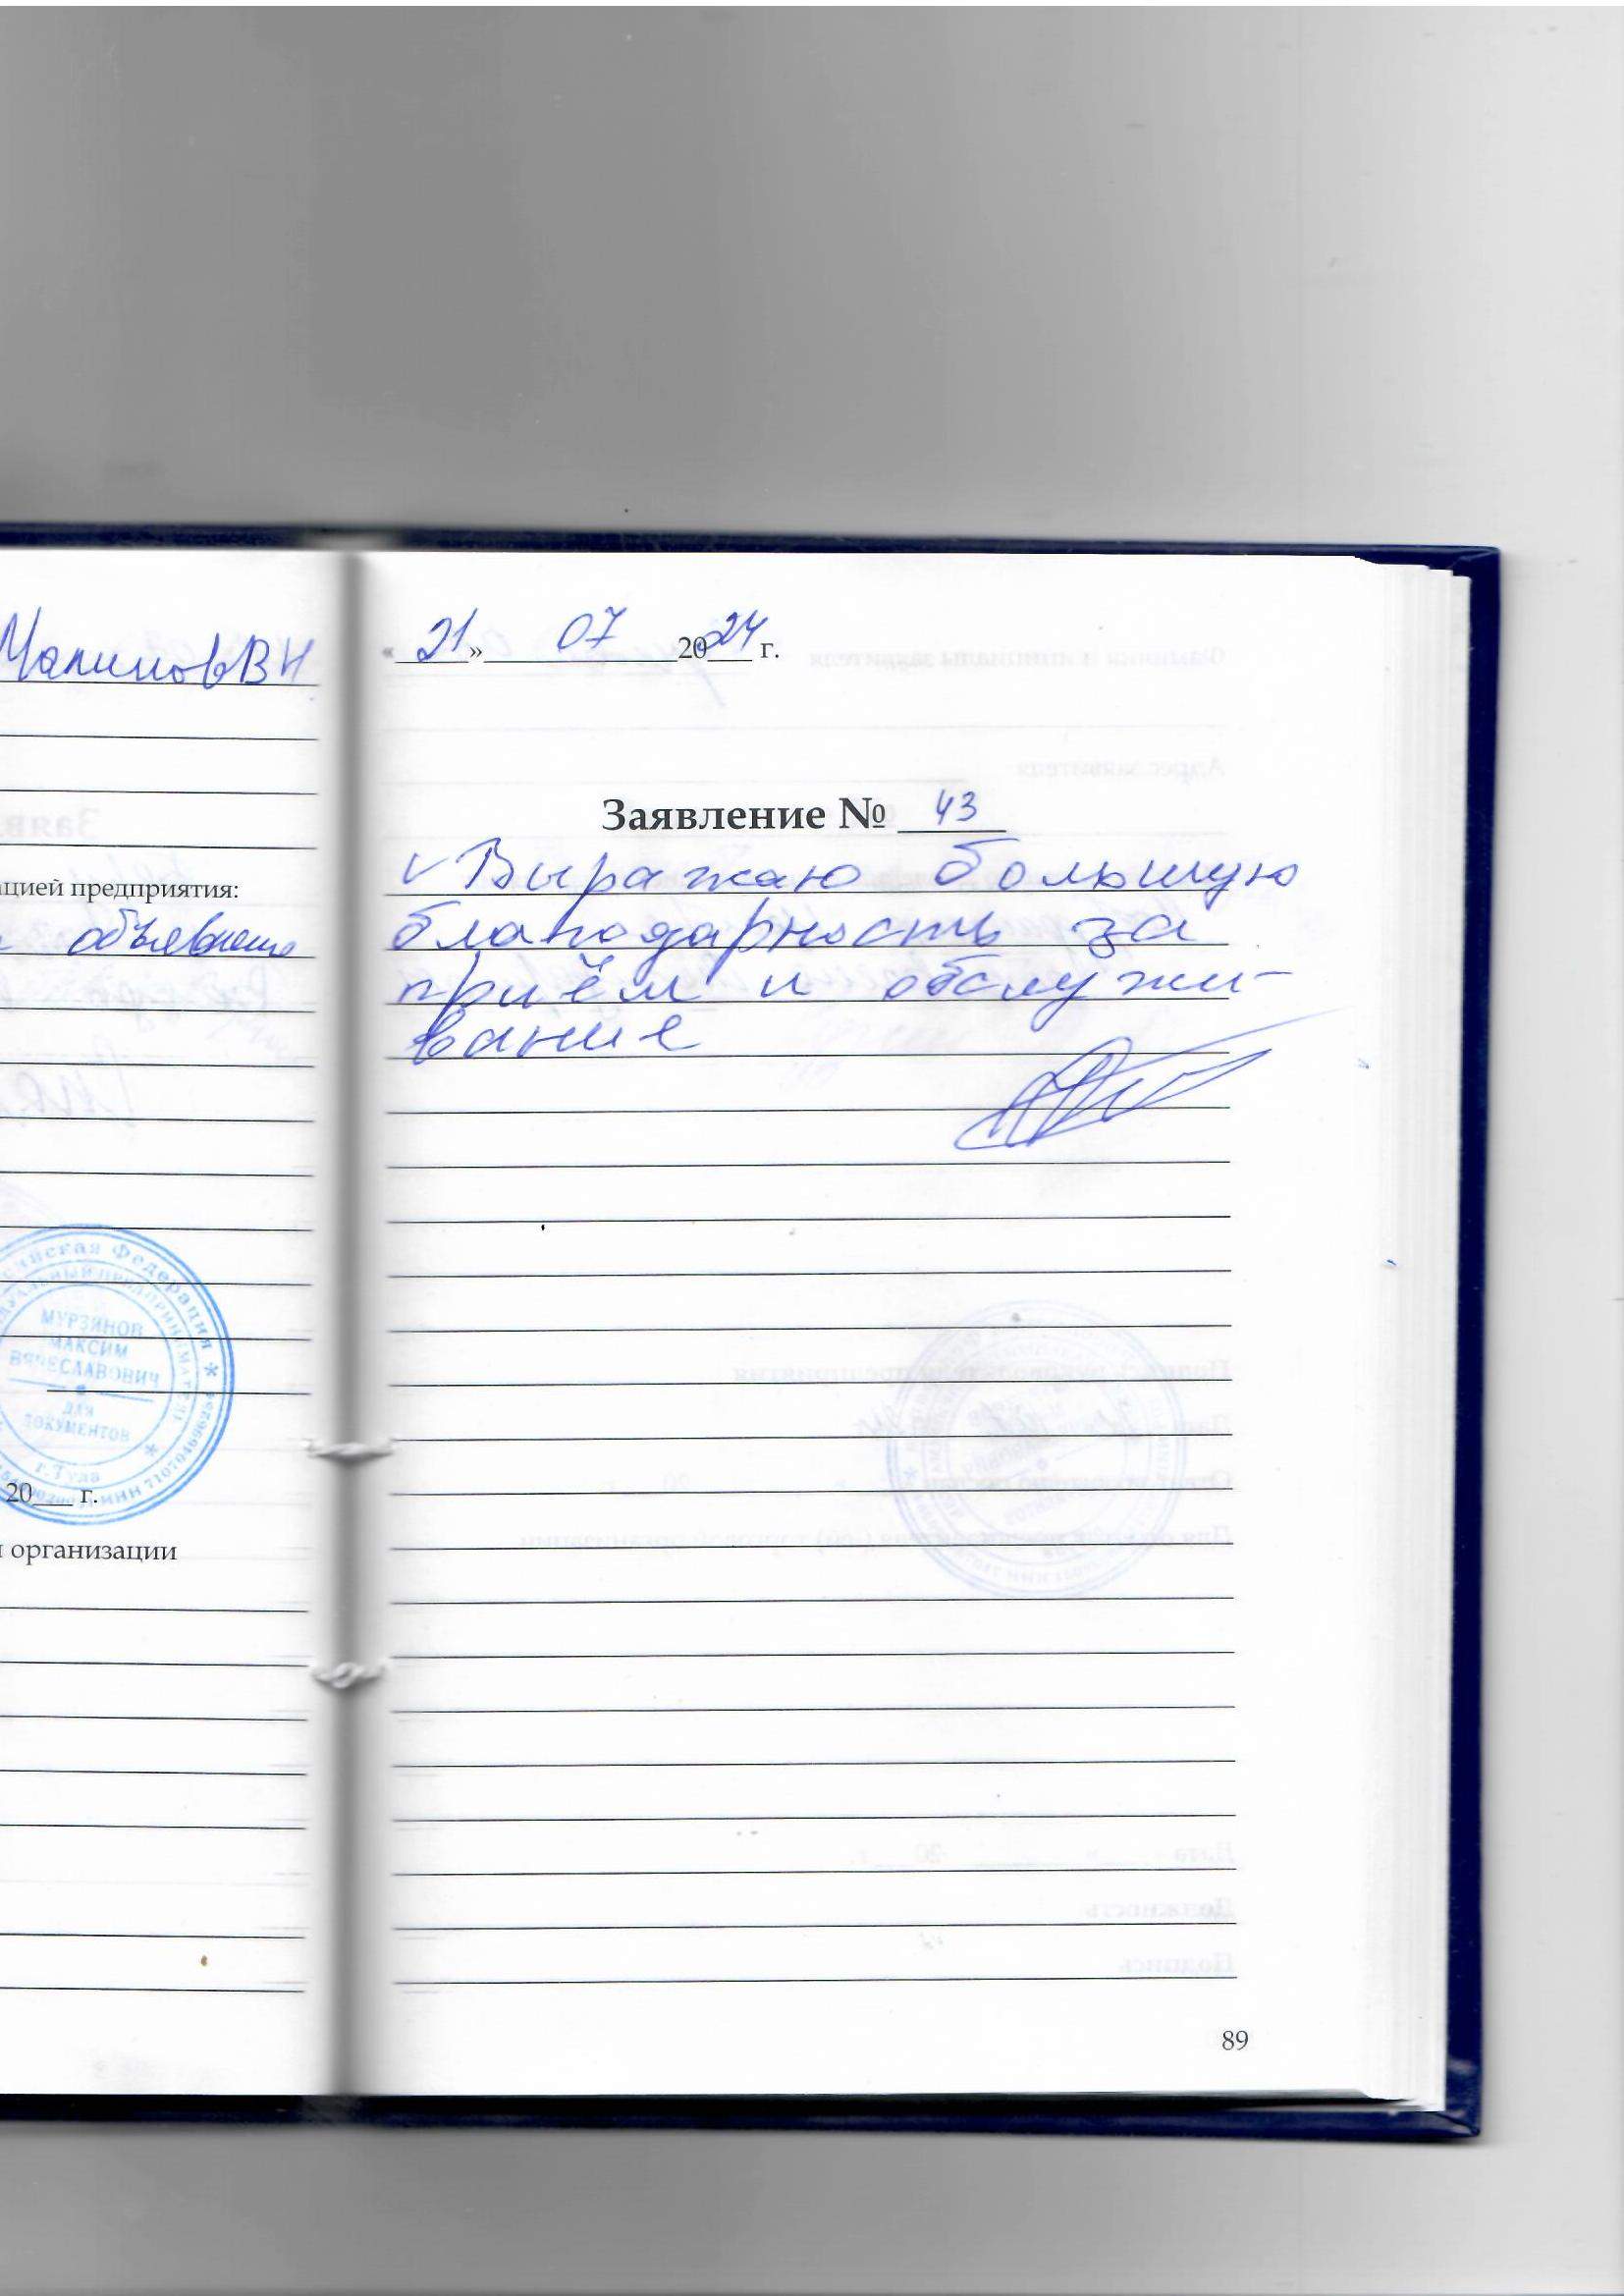 Малинов В Н
ацией предприятия:
объявлена
Российская Федерация
МУРЗИНОВ
МАКСИМ
ВЯЧЕСЛАВОВИЧ
ДЛЯ
ДОКУМЕНТОВ
г.Тула
20___ г.
организации
« 21 » 07 2024 г.
Заявление № 43
Выражаю большую
благодарность за
приём и обслужи-
вание
89